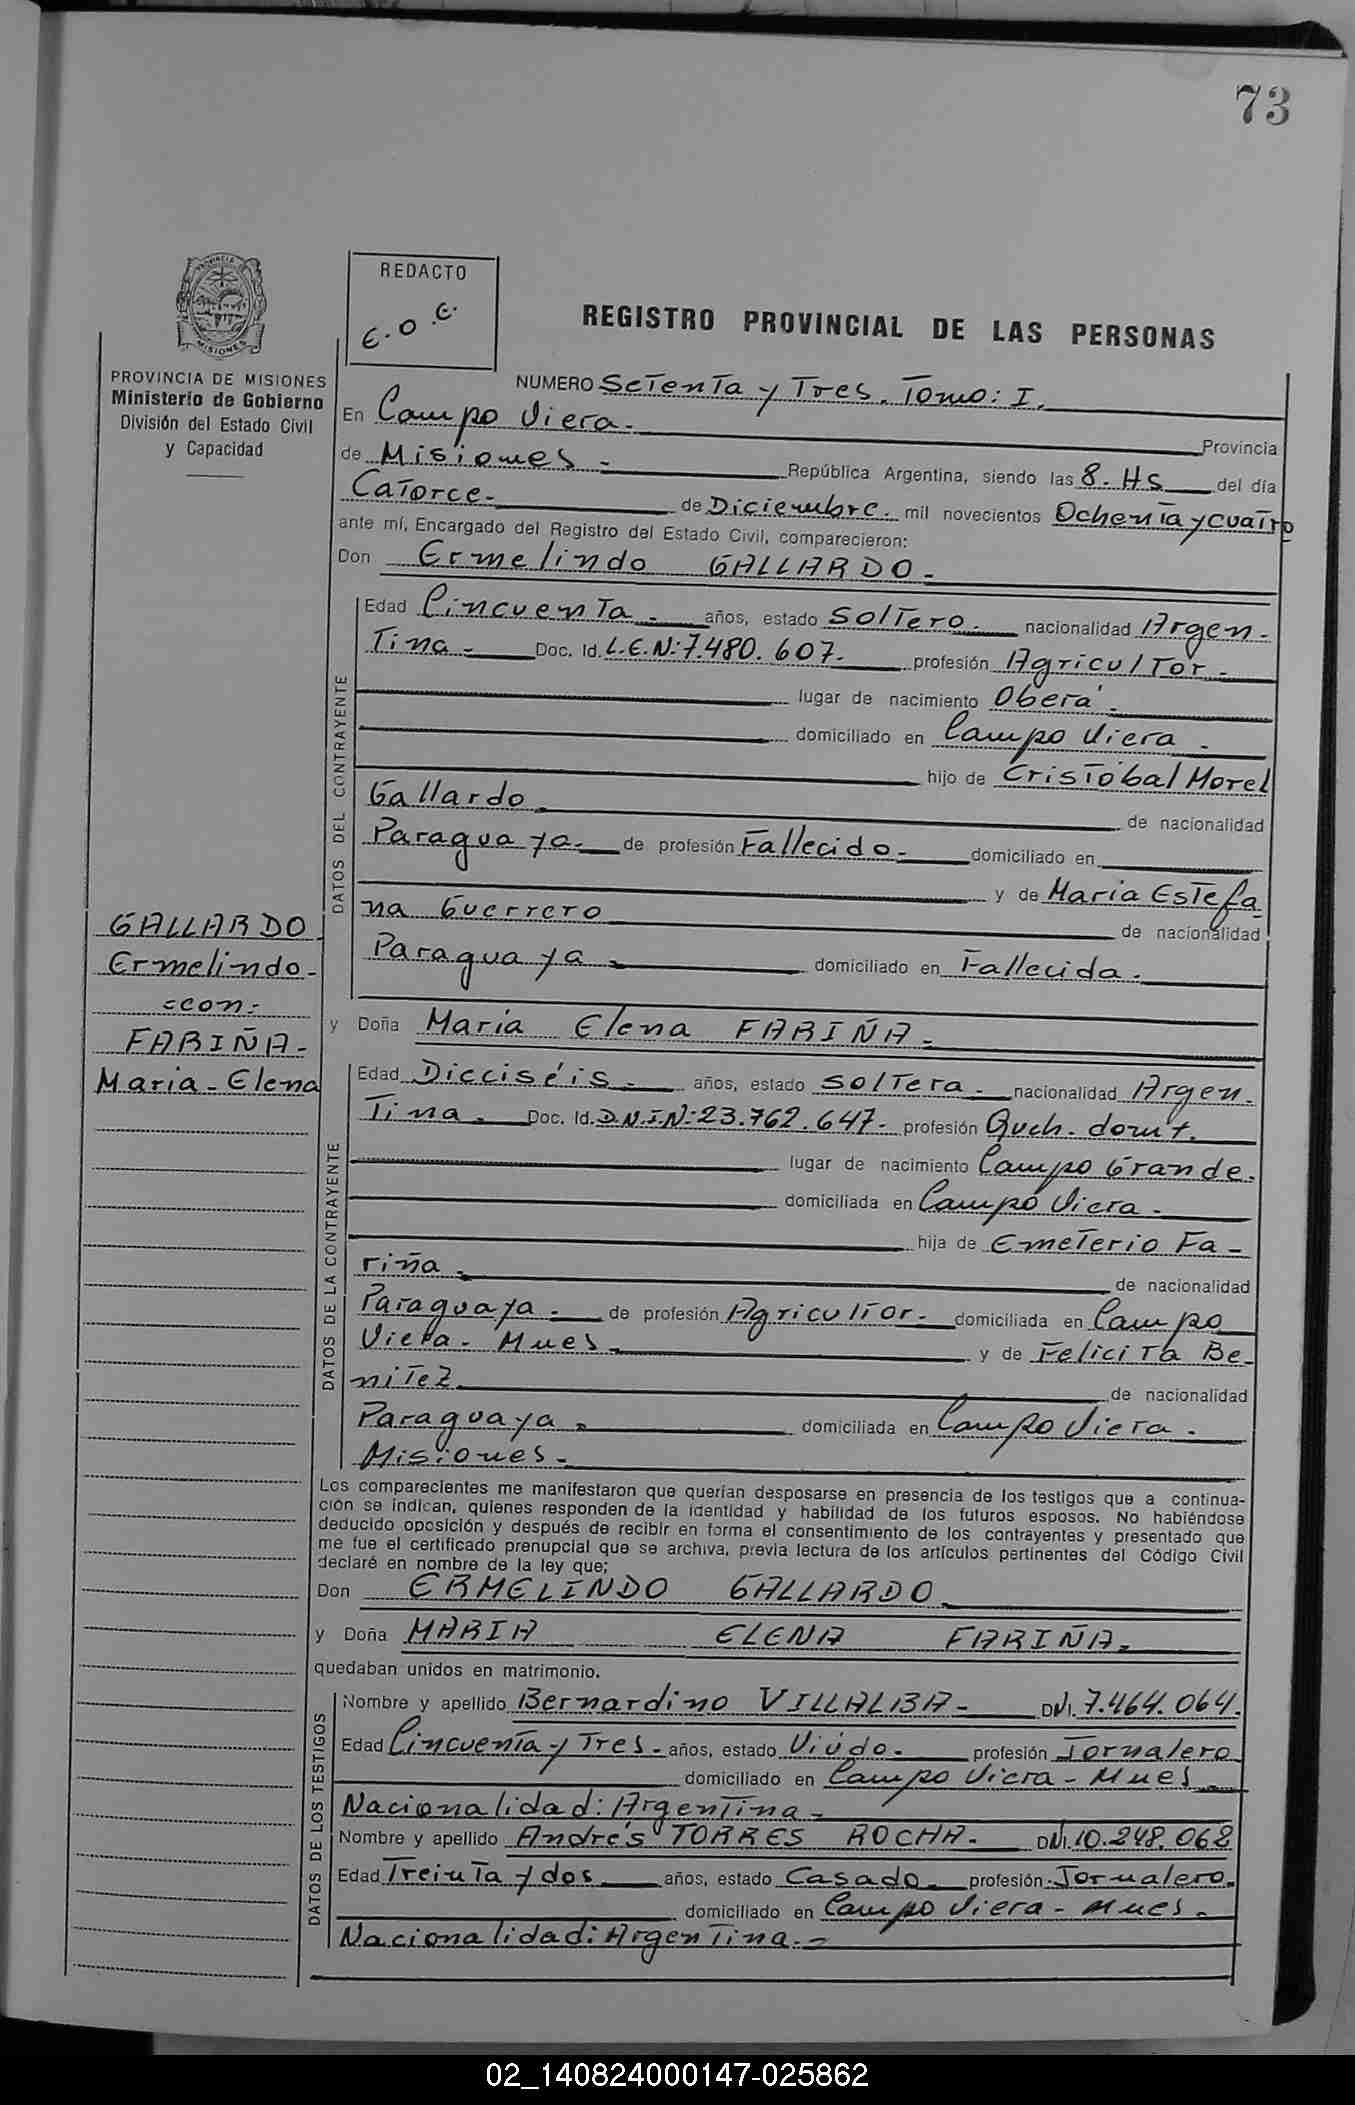 73
PROVINCIA DE MISIONES
PROVINCIA DE MISIONES
Ministerio de Gobierno
División del Estado Civil
y Capacidad
REDACTO
E.O.E.
REGISTRO PROVINCIAL DE LAS PERSONAS
NUMERO Setenta y Tres. Tomo: I.
En Campo Viera.- Provincia
de Misiones - República Argentina, siendo las 8.Hs del día
Catorce.- de Diciembre. mil novecientos Ochenta y cuatro
ante mí, Encargado del Registro del Estado Civil, comparecieron:
Don Ermelindo GALLARDO.-
DATOS DEL CONTRAYENTE
Edad Cincuenta.- años, estado Soltero.- nacionalidad Argen-
tina.- Doc. Id. L.E.N:7.480.607.- profesión Agricultor.-
lugar de nacimiento Oberá.-
domiciliado en Campo Viera.-
hijo de Cristóbal Morel
Gallardo. de nacionalidad
Paraguaya.- de profesión Fallecido.- domiciliado en
y de Maria Estefa-
na Guerrero de nacionalidad
Paraguaya - domiciliado en Fallecida.
GALLARDO
Ermelindo-
=con=
FARIÑA-
Maria-Elena
y Doña Maria Elena FARIÑA.-
DATOS DE LA CONTRAYENTE
Edad Dieciséis.- años, estado Soltera.- nacionalidad Argen-
tina.- Doc. Id. D.N.I.N:23.762.647.- profesión Queh. domt.
lugar de nacimiento Campo Grande.
domiciliada en Campo Viera.-
hija de Emeterio Fa-
riña.- de nacionalidad
Paraguaya.- de profesión Agricultor.- domiciliada en Campo
Viera.- Mnes.- y de Felicita Be-
nitez de nacionalidad
Paraguaya.- domiciliada en Campo Viera.-
Misiones.-
Los comparecientes me manifestaron que querían desposarse en presencia de los testigos que a continua-
ción se indican, quienes responden de la identidad y habilidad de los futuros esposos. No habiéndose
deducido oposición y después de recibir en forma el consentimiento de los contrayentes y presentado que
me fue el certificado prenupcial que se archiva, previa lectura de los artículos pertinentes del Código Civil
declaré en nombre de la ley que;
Don ERMELINDO GALLARDO.
y Doña MARIA ELENA FARIÑA.-
quedaban unidos en matrimonio.
DATOS DE LOS TESTIGOS
Nombre y apellido Bernardino VILLALBA- DNI. 7.464.064.
Edad Cincuenta y Tres.- años, estado Viúdo.- profesión Jornalero
domiciliado en Campo Viera - Mnes.-
Nacionalidad: Argentina.-
Nombre y apellido Andrés TORRES ROCHA.- DNI. 10.248.062
Edad Treinta y dos años, estado Casado.- profesión Jornalero.
domiciliado en Campo Viera - Mnes.-
Nacionalidad: Argentina.-
02_140824000147-025862